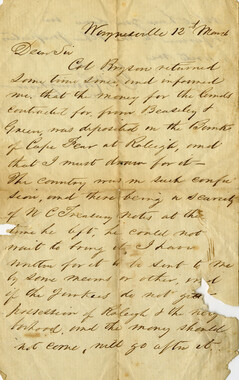 Waynesville 12th March
Dear Sir
Col Bryson returned
some time since and informed
me that the money for the lands
contracted for from Beasley &
Green, was deposited in the Bank
of Cape Fear at Raleigh, and
that I must draw for it—
The country was in such confu
sion, and there being a scarcity
of N C Treasury Notes at the
time he left, he could not
wait to bring it. I have
written for it to be sent to me
by some means or other, and
if the Yankees do not get
possession of Raleigh & the neigh
borhood, and the money should
not come, will go after it